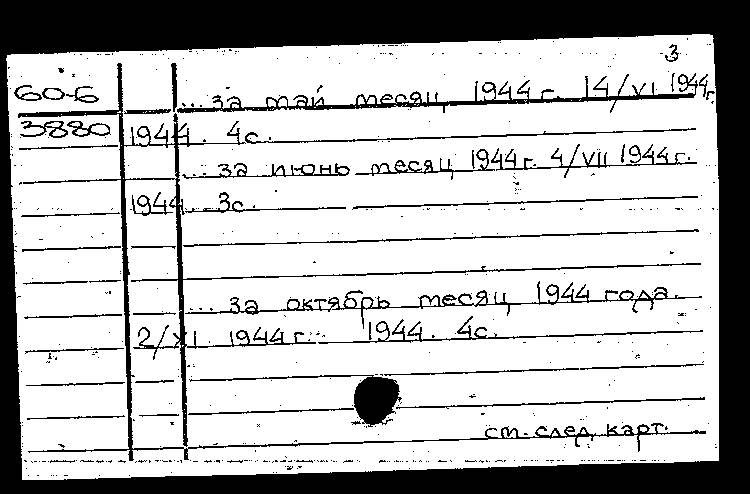 3
60-6 ... за май месяц 1944 г. 14/VI 1944 г.
3880 1944. 4с.
... за июнь месяц 1944 г. 4/VII 1944 г.
1944. 3с.
... за октябрь месяц 1944 года.
2/XI 1944 г. 1944. 4с.
ст. след. карт.